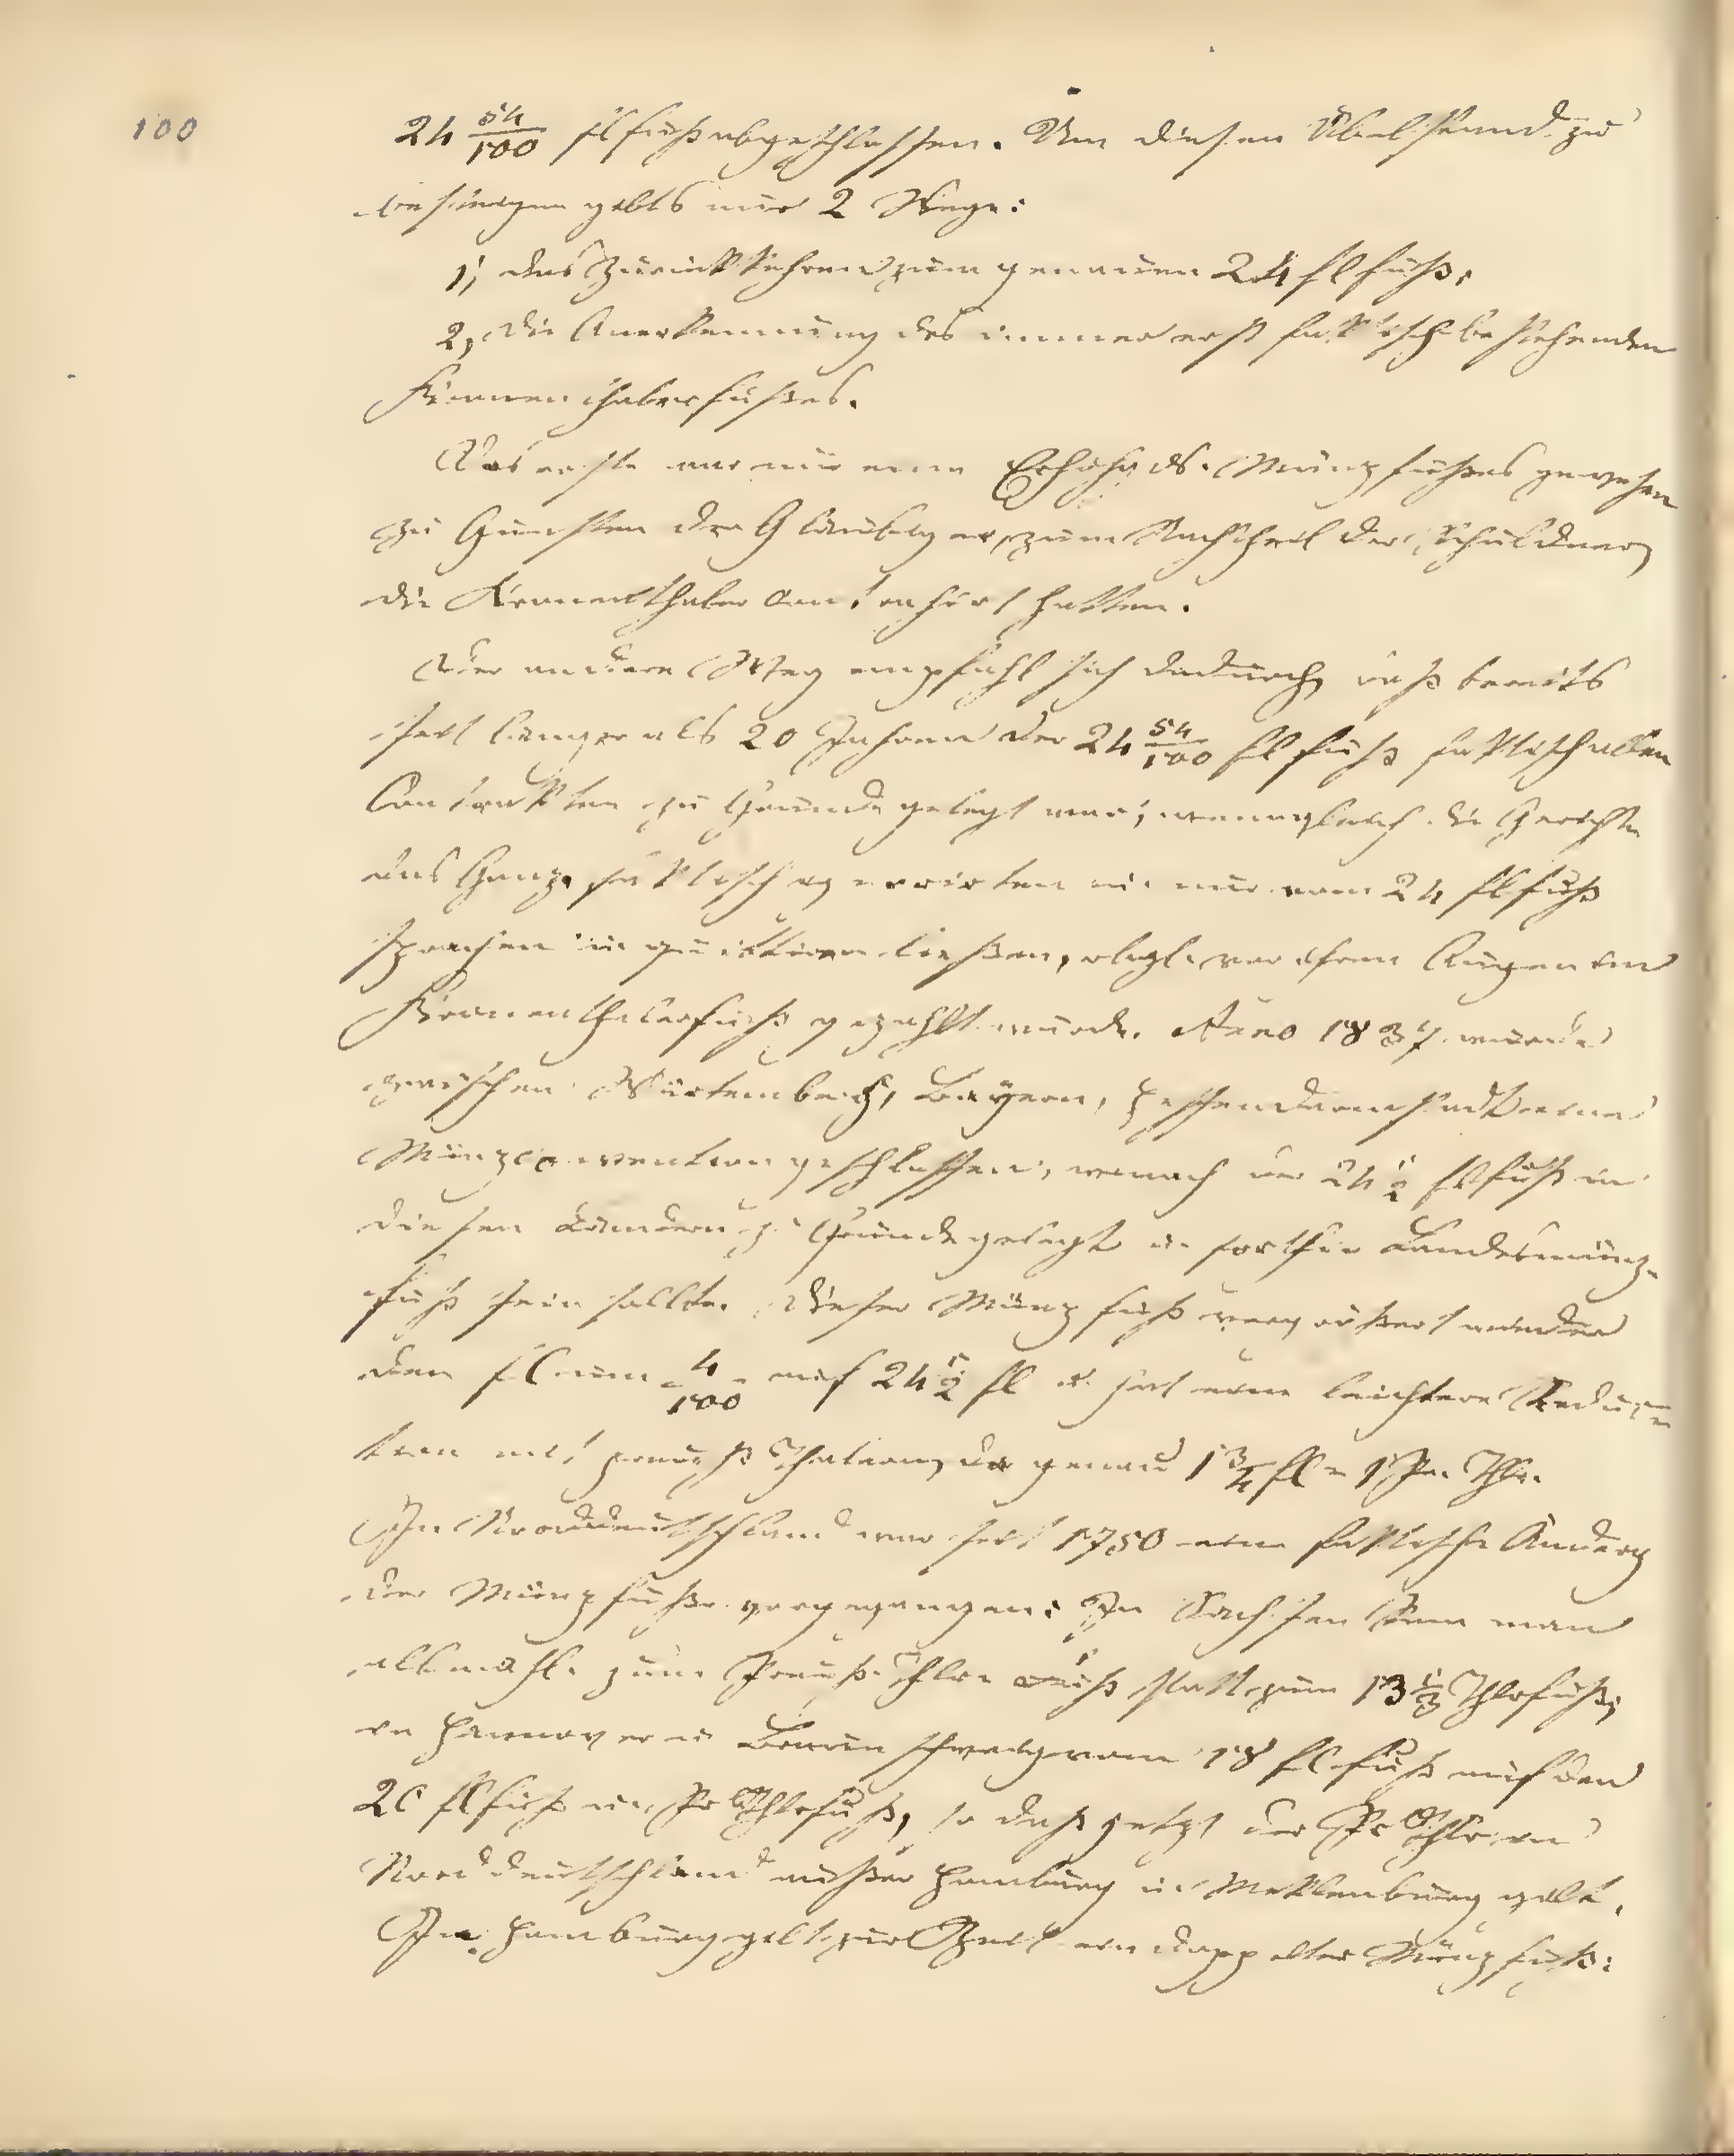 100
24 54/100 fl fuß abgeschlossen. Um diesen Übelstand zu
beseitigen gebts nur 2 Wege:
1, das Zurückkehren zum genauen 24 fl fuß,
2, die Anerkennung des immer erst faktisch bestehenden
Kronenthalerfußes.
Das erste war nur eine Erhöhg ds. Münzfußes gewesen
zu Gunsten der Gläubiger, zum Nachtheil der Schuldner,
die Kronenthaler contrahirt hatten.
Der andere Weg empfahl sich dadurch, daß bereits
seit länger als 20 Jahren der 24 54/100 fl fuß faktisch allen
Contrakten zu Grunde gelegt war, wenngleich die Gerichte
das Ganze faktisch ignorirten u. nur vom 24 fl fuß
sprachen u. quittiren ließen, obgl. vor ihren Augen im
Kronenthalerfuß gezahlt wurde. Anno 1837 wurde
zwischen Würtemberg, Bayern, Hessendarmstadt eine
Münzconvention geschlossen, wonach der 24 1/2 fl fuß in
diesen Ländern z. Grunde gelegt u. forthin Landesmünz-
fuß sein sollte. Dieser Münzfuß vergrößert wieder
den fl um 4/100 auf 24 1/2 fl u. hat eine leichtere Reduk-
tion mit preuß Thalern, da genau 1 3/4 fl = 1 Pr. Thlr.
In Norddeutschland war seit 1750 eine faktische Änderg
der Münzfüße vorgegangen: In Sachsen kam man
allmähl. zum Preuß. Thlr. fuß statt zum 13 1/3 Thlrfuß;
in Hannover u. Braunschweig vom 18 fl fuß auf den
20 fl fuß u. Pr Thlrfuß, so daß jetzt der Pr Thlr in
Norddeutschland außer Hamburg u. Meklenburg gilt.
In Hamburg gilt zur Zeit ein doppelter Münzfuß: